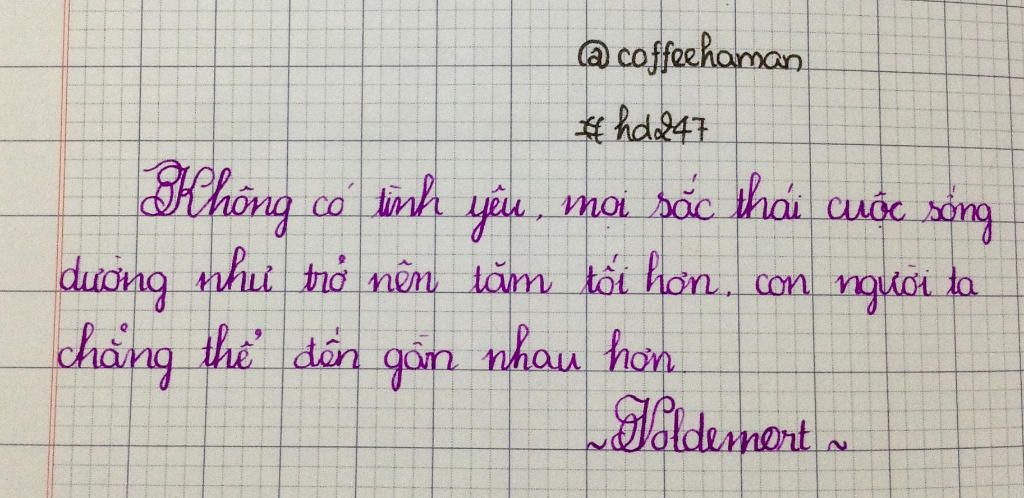 @coffeehaman
# hd247
Không có tình yêu, mọi sắc thái cuộc sống
dường như trở nên tăm tối hơn, con người ta
chẳng thể đến gần nhau hơn
~Voldemort~